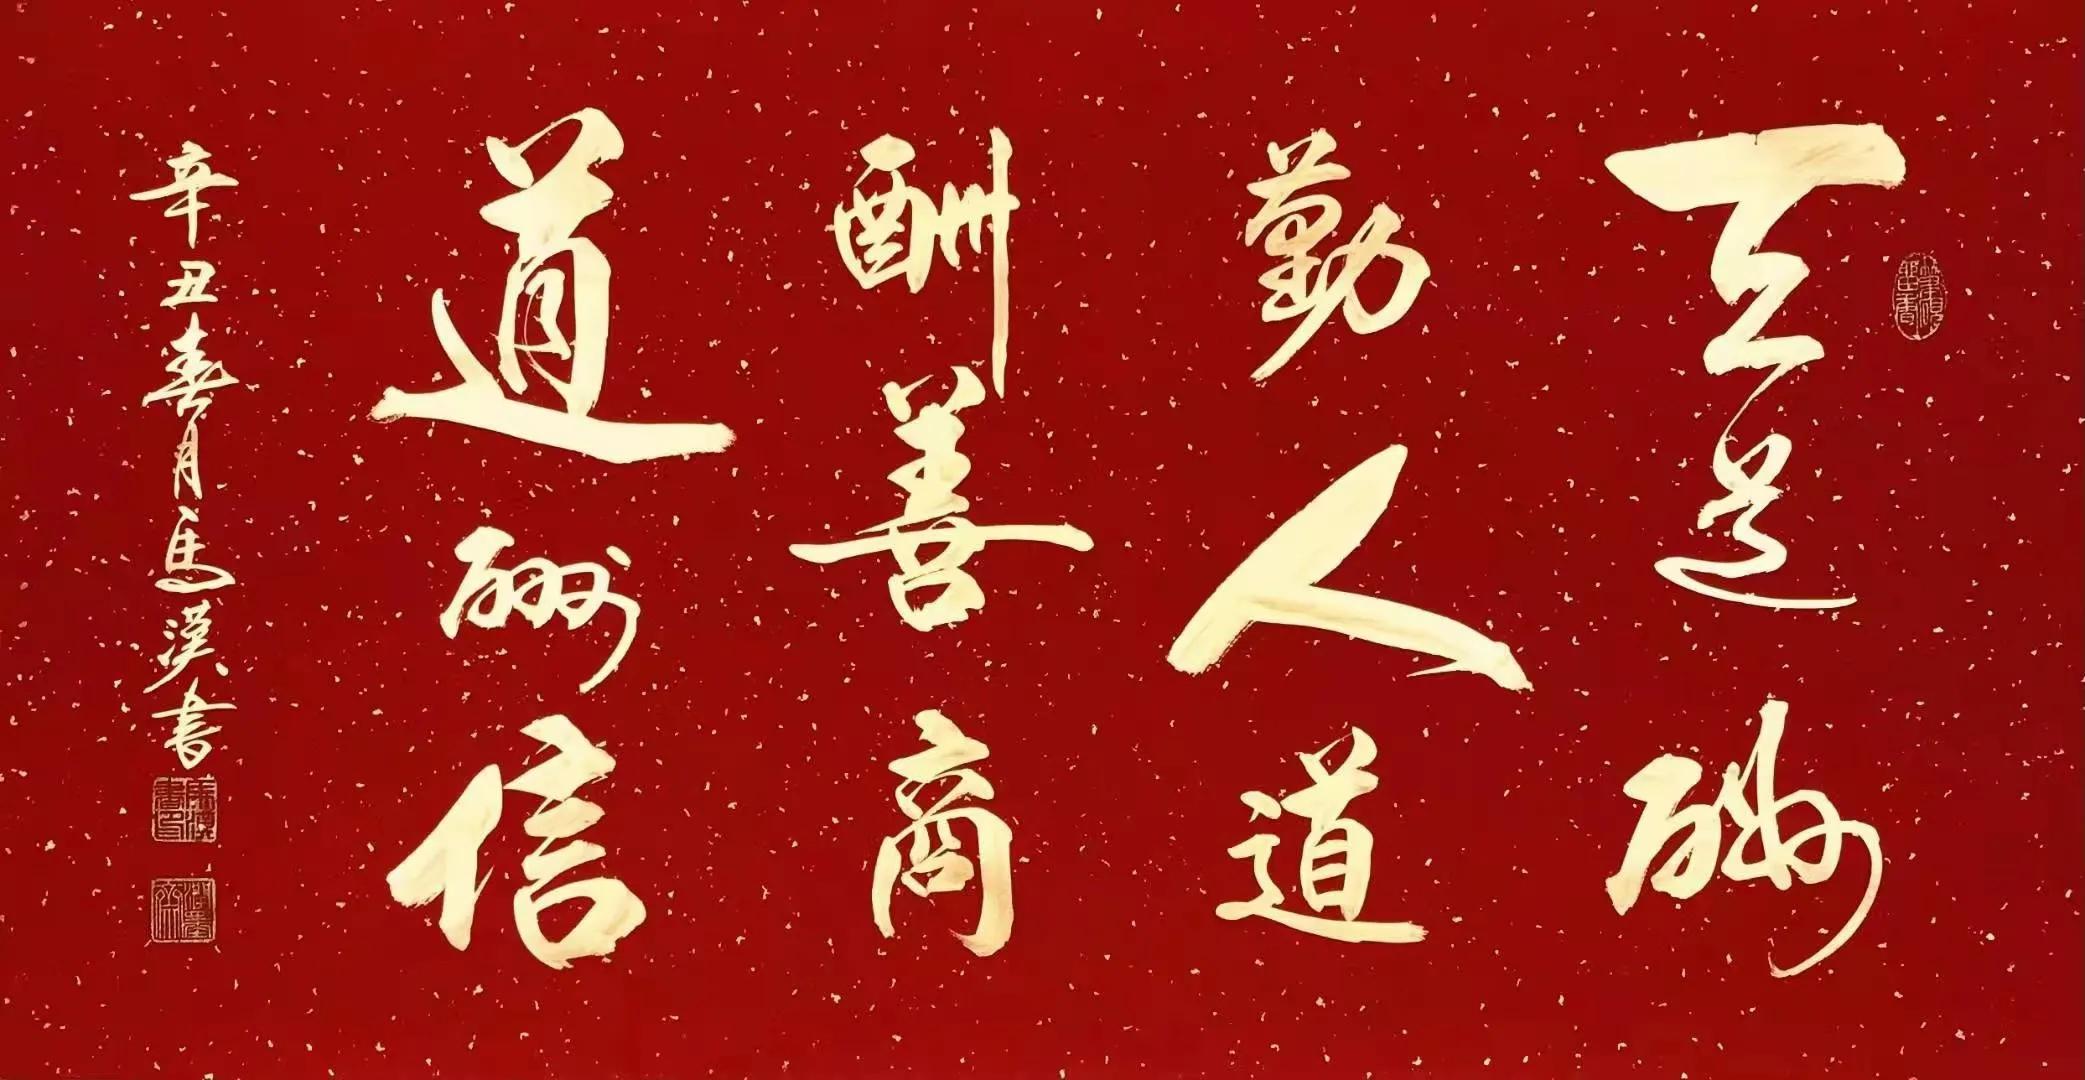 天道酬
勤人道
酬善商
道酬信
辛丑春月马汉书